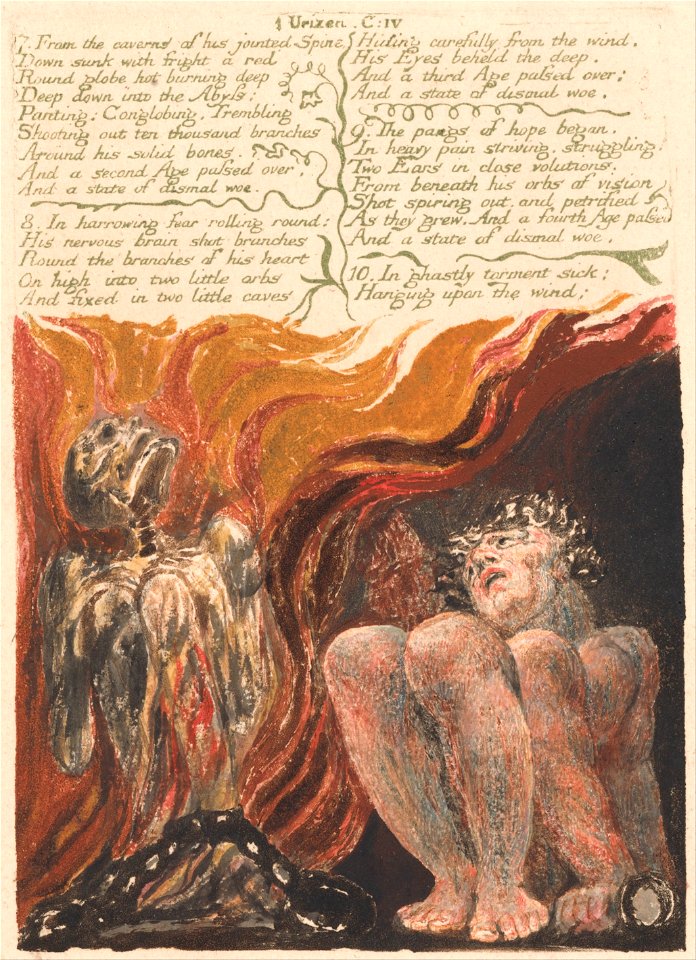 1 Urizen. C: IV
7. From the caverns of his jointed Spine
Down sunk with fright a red
Round globe hot burning deep
Deep down into the Abyss:
Panting: Conglobing, Trembling
Shooting out ten thousand branches
Around his solid bones.
And a second Age passed over,
And a state of dismal woe.
8. In harrowing fear rolling round:
His nervous brain shot branches
Round the branches of his heart
On high into two little orbs
And fixed in two little caves
Hiding carefully from the wind,
His Eyes beheld the deep,
And a third Age passed over:
And a state of dismal woe.
9. The pangs of hope began,
In heavy pain striving, struggling.
Two Ears in close volutions.
From beneath his orbs of vision
Shot spiring out and petrified
As they grew. And a fourth Age passed
And a state of dismal woe.
10. In ghastly torment sick;
Hanging upon the wind;